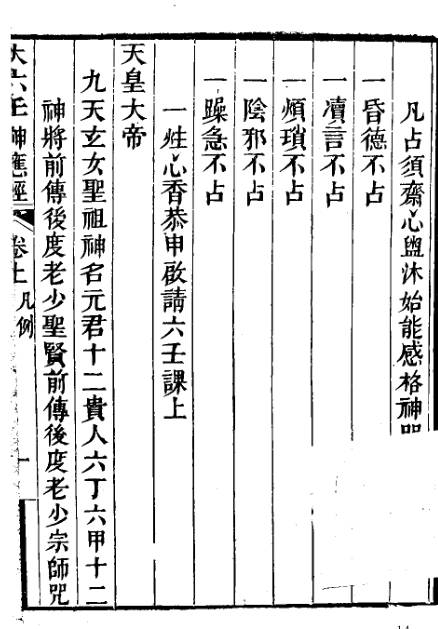 凡占須齋心盥沐始能感格神
一昏德不占
一凟言不占
一煩瑣不占
一陰邪不占
一躁急不占
一炷心香恭申啟請六壬課上
天皇大帝
九天玄女聖祖神名元君十二貴人六丁六甲十二
神將前傳後度老少聖賢前傳後度老少宗師咒
大六壬神應經 卷上 凡例 一